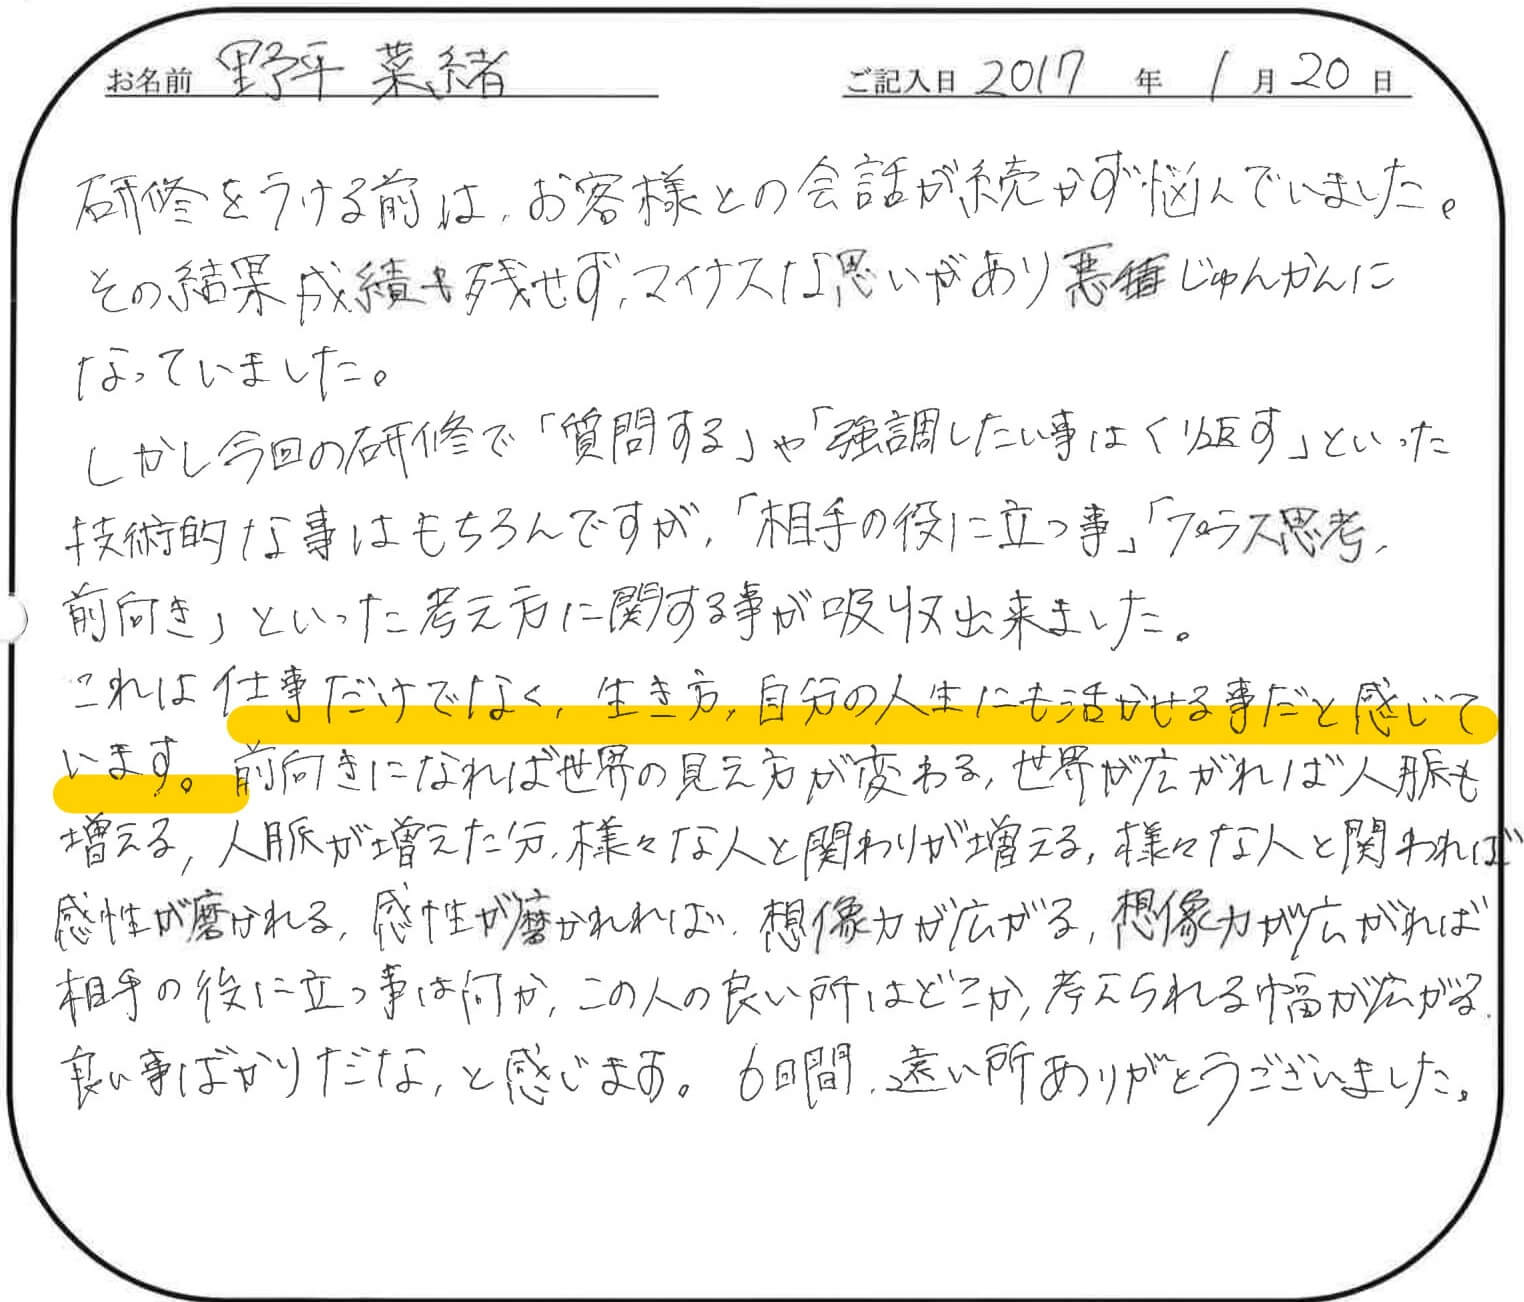 お名前 野平 菜緒 ご記入日 2017 年 1 月 20 日
研修をうける前は、お客様との会話が続かず悩んでいました。
その結果成績も残せず、マイナスな思いがあり悪循じゅんかんに
なっていました。
しかし今回の研修で「質問する」や「強調したい事はくり返す」といった
技術的な事はもちろんですが、「相手の役に立つ事」「プラス思考、
前向き」といった考え方に関する事が吸収出来ました。
これは仕事だけでなく、生き方、自分の人生にも活かせる事だと感じて
います。前向きになれば世界の見え方が変わる、世界が広がれば人脈も
増える、人脈が増えた分、様々な人と関わりが増える、様々な人と関われば
感性が磨かれる、感性が磨かれれば、想像力が広がる、想像力が広がれば
相手の役に立つ事は何か、この人の良い所はどこか、考えられる幅が広がる、
良い事ばかりだな、と感じます。 6日間、遠い所ありがとうございました。